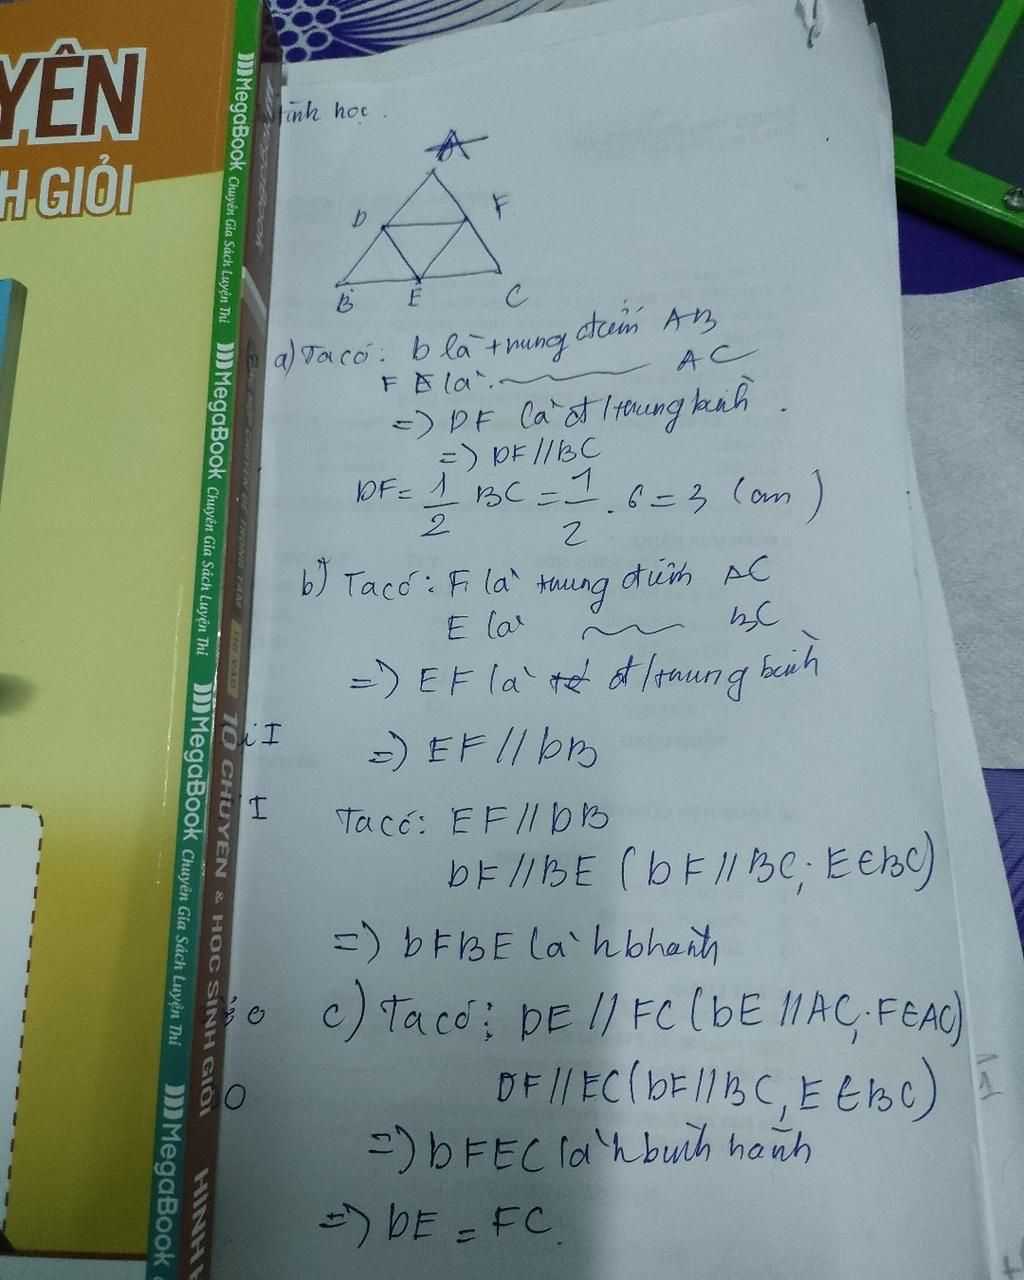 YÊN
H GIỎI
MegaBook Chuyên Gia Sách Luyện Thi
MegaBook Chuyên Gia Sách Luyện Thi
MegaBook Chuyên Gia Sách Luyện Thi
MegaBook
10 CHUYÊN & HỌC SINH GIỎI HÌNH
hình học.
A
D F
B E C
a) Ta có: D là trung điểm AB
F là ~ AC
=) DF là đ/trung bình.
=) DF//BC
DF = 1/2 BC = 1/2 . 6 = 3 (cm)
b) Ta có: F là trung điểm AC
E là ~ BC
=) EF là đ/trung bình
=) EF // DB
Ta có: EF // DB
DF // BE (DF // BC; E∈BC)
=) DFBE là hbhành
c) Ta có: DE // FC (DE // AC; F∈AC)
DF // EC (DF // BC, E∈BC)
=) DFEC là hbình hành
=) DE = FC.